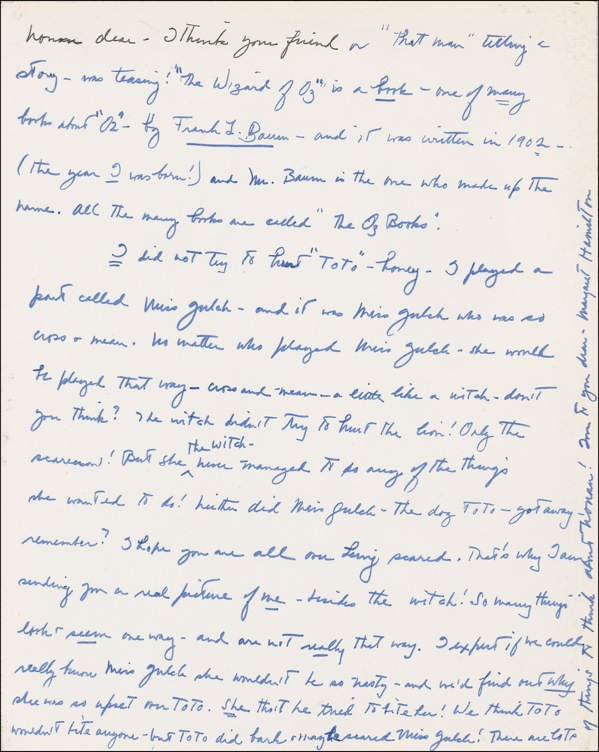 honey dear - I think your friend or "that man" telling a
story - was teasing! "The Wizard of Oz" is a book - one of many
books about "Oz" - by Frank L. Baum - and it was written in 1902 -
(the year I was born!) and Mr. Baum is the one who made up the
name. All the many books are called "The Oz Books".
I did not try to hurt "ToTo" - honey - I played a
part called Miss Gulch - and it was Miss Gulch who was so
cross & mean. No matter who played Miss Gulch - she would
be played that way - cross and mean - a little like a witch - don't
you think? The witch didn't try to hurt the lion! Only the
scarecrow! But she, the witch - never managed to do any of the things
she wanted to do! Neither did Miss Gulch - the dog ToTo - got away -
remember? I hope you are all over being scared. That's why I am
sending you a real picture of me - besides the witch! So many things
look & seem one way - and are not really that way. I expect if we could
really know Miss Gulch she wouldn't be so nasty - and we'd find out why
she was so upset over ToTo. She thot he tried to bite her! We think ToTo
wouldn't bite anyone - but ToTo did bark & maybe scared Miss Gulch! There are lots
of things to think about honey! Love to you dear - Margaret Hamilton